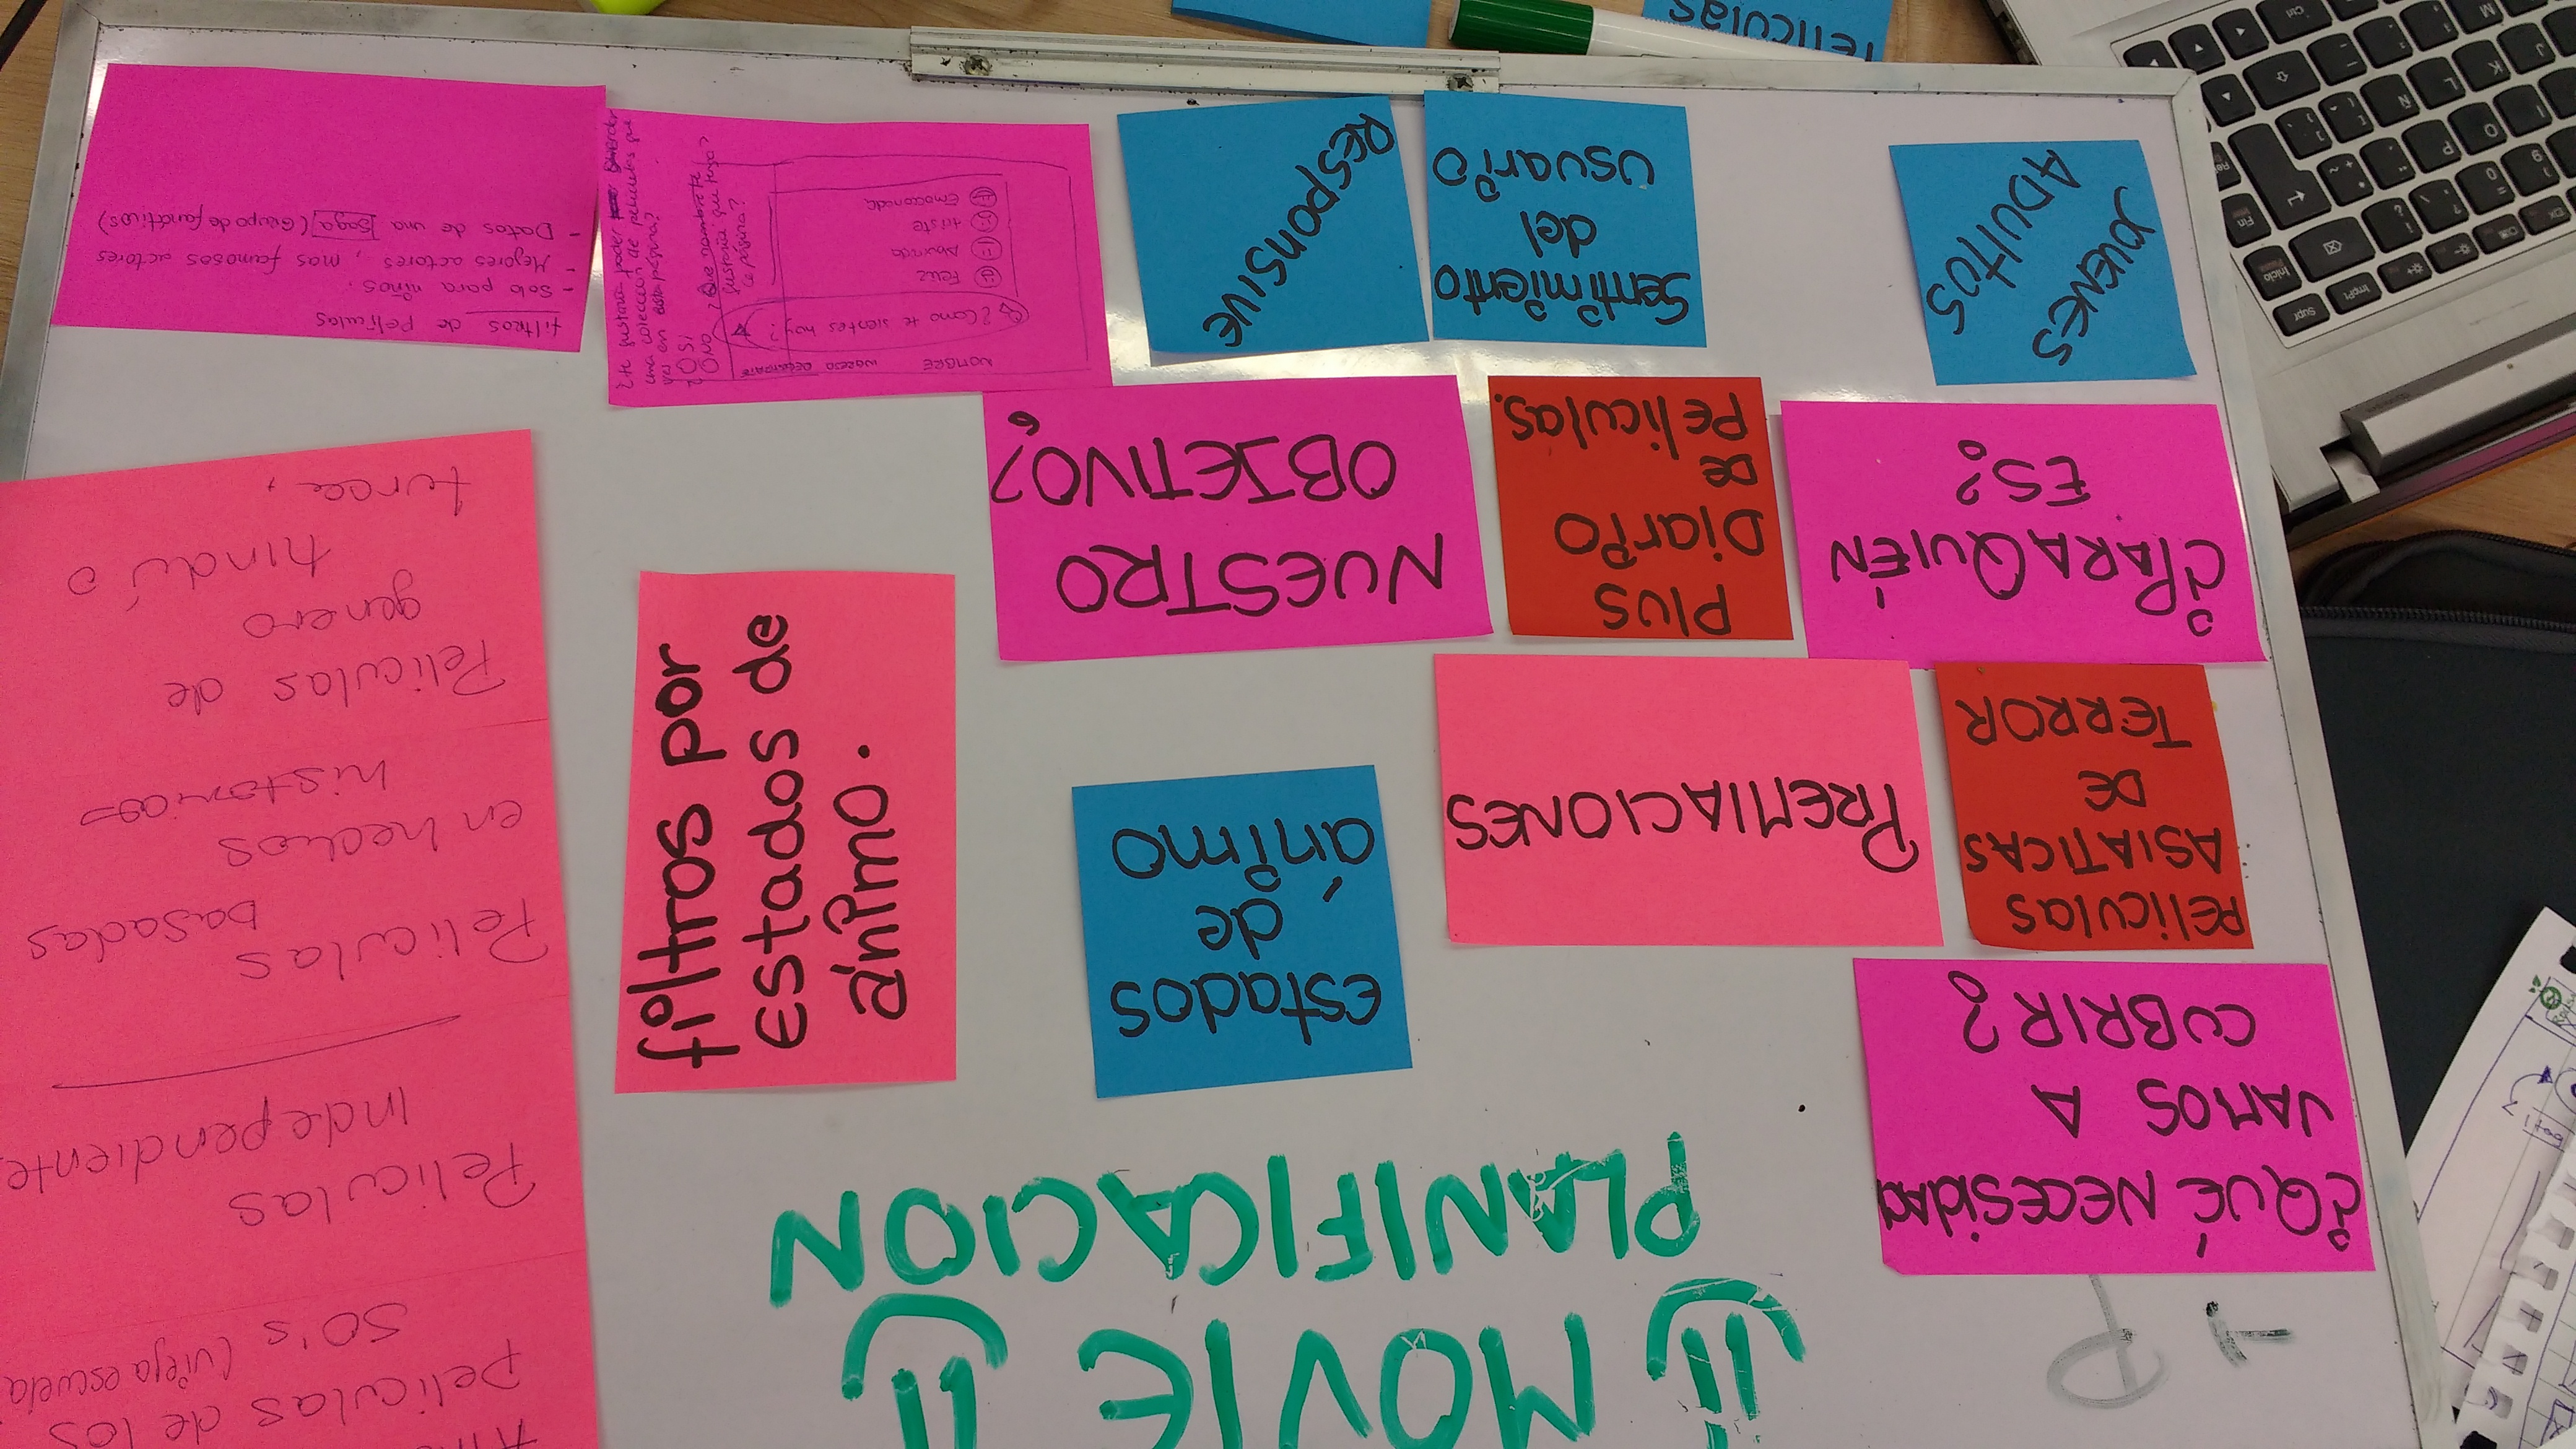 MOVIE
PLANIFICACION
P
¿QUÉ NECESIDAD
VAMOS A
CUBRIR?
PELICULAS
ASIATICAS
DE
TERROR
PREMIACIONES
Estados
de
ánimo
filtros por
estados de
ánimo.
Peliculas de los
50's (vieja escuela
Peliculas
Independiente
Peliculas
basadas
en hechos
historicos
Peliculas de
genero
hindú o
turca,
¿PARA QUIÉN
ES?
PLUS
Diario
DE
Peliculas.
NUESTRO
OBJETIVO?
JOVENES
ADULTOS
Sentimiento
del
usuario
RESPONSIVE
NOMBRE INGRESO REGISTRATE
¿Como te sientes hoy?
Feliz
Aburrida
triste
Emocionada
¿te gustaria poder
una colección de peliculas que
ves en esta página?
SI
NO
¿Que nombre te
gustaría que tenga
la página?
filtros de peliculas
- Solo para niños.
- Mejores actores, mas famosos actores
- Datos de una saga (Grupo de fanáticos)
Peliculas
Supr
ImpPt
Inicio
Pausa
Fin
Ctrl
P
O
I
Ñ
L
K
J
M